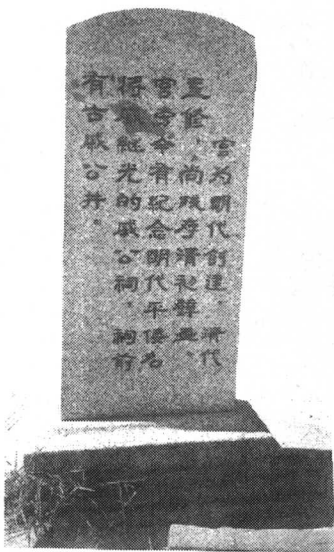 宫为明代创建，清代
重修，尚残存清
宫今有纪念明代平倭名
将戚继光的戚公祠，祠前
有古戚公井。